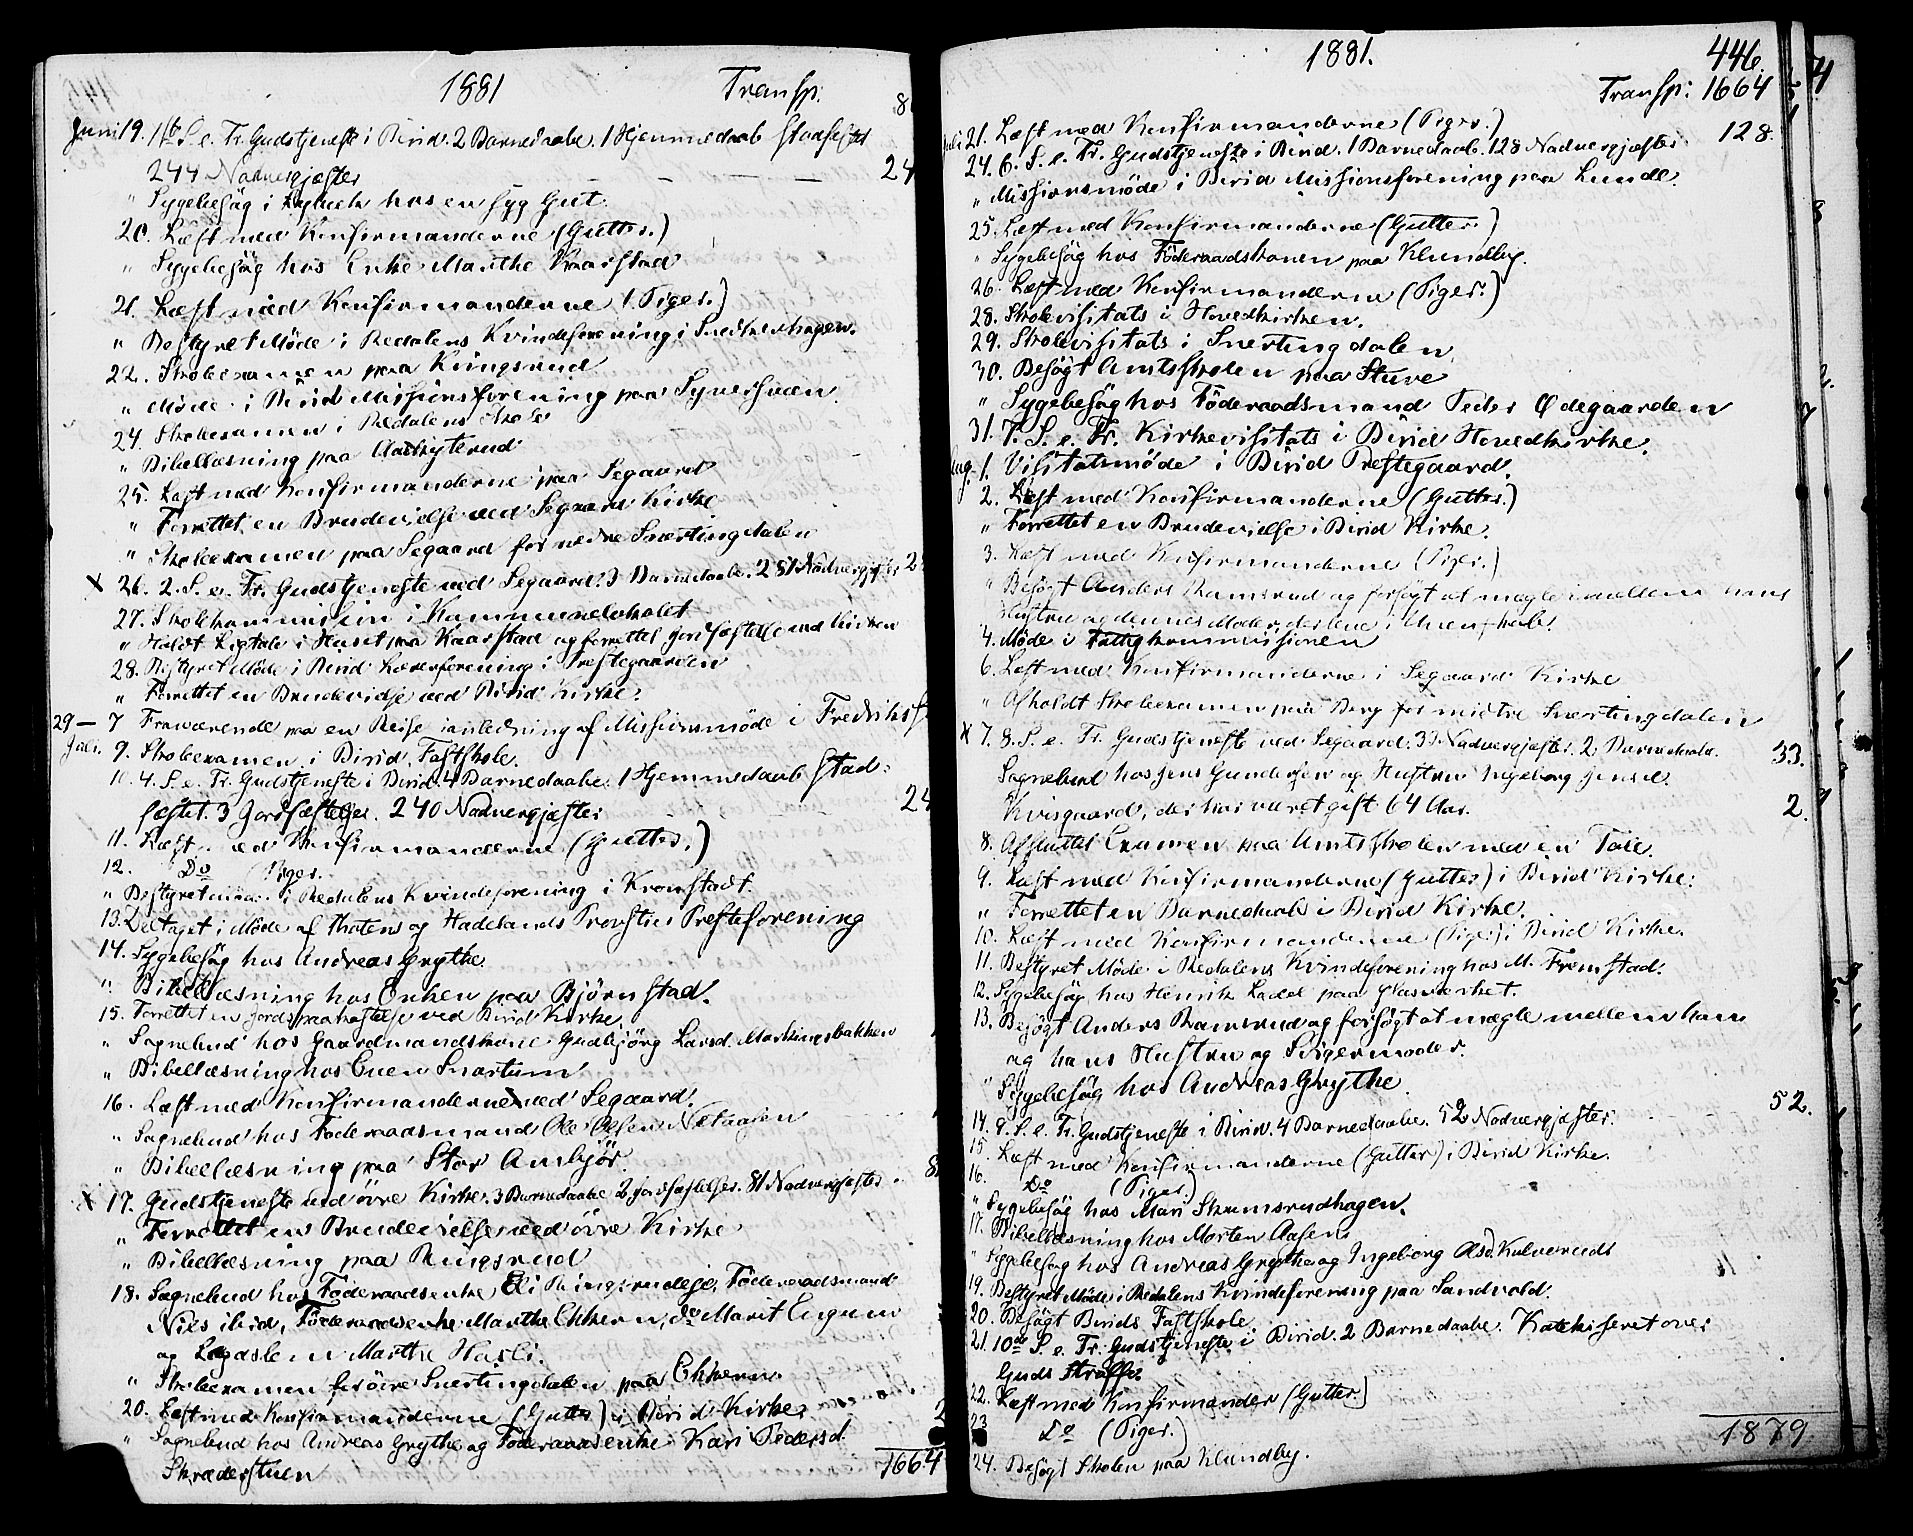 1881 Transp. 8
Juni 19. 1ste S. e. Tr. Gudstjeneste i Birid. 2 Barnedaabe. 1 Hjemmedaab stadfestet
244 Nadvergjæster — — — — 24
" Sygebesög i hos en syg Gut.
20. Læst med Konfirmanderne (Gutter.)
" Sygebesög hos Enke Marthe Kaarstad
21. Læst med Konfirmanderne (Piger.)
" Bestyret Møde i Redalens Kvindeforening i Snedkerhagen.
22. Skoleexamen paa Ringsrud
" Møde i Birid Missionsforening paa Synersveen.
24. Skoleexamen i Redalens Skole
" Bibellæsning paa
25. Læst med Konfirmanderne paa Segaard
" Forrettet en Brudevielse ved Segaard Kirke
" Skoleexamen paa Segaard for nedre Snertingdalen
X 26. 2. S. e. Tr. Gudstjeneste ved Segaard. 3 Barnedaabe. 281 Nadvergjæster 2
27. Skolekommission i Kommunelokalet
" Holdt Ligtale i Huset paa Kaarstad og forrettet Jordfæstelse ved Kirken
28. Bestyret Møde i Birid Lærerforening i Prestegaarden
" Forrettet en Brudevielse ved Birid Kirke.
29 — 7 Fraværende paa en Reise i anledning af Missionsmøde i Fredriks
Juli. 9. Skoleexamen i Birid Fastskole.
10. 4. S. e. Tr. Gudstjeneste i Birid. 4 Barnedaabe. 1 Hjemmedaab stad:
fæstet. 3 Jordfæstelser. 240 Nadvergjæster 24
11. Læst med Konfirmanderne (Gutter.)
12. Do (Piger.
" Bestyret Møde i Redalens Kvindeforening i Kronstadt.
13. Deltaget i Møde af Thotens og Hadelands Provsties Presteforening
14. Sygebesög hos Andreas Grythe.
" Bibellæsning hos Enken paa Björnstad.
15. Forrettet en Jordspaakastelse ved Birid Kirke.
" Sognebud hos Gaardmandskone Gudbjörg Larsd. Martinsbakken
" Bibellæsning hos Even Snartum
16. Læst med Konfirmanderne ved Segaard.
" Sognebud hos Föderaadsmand Ole Olsen
" Bibellæsning paa Stor Ambjör.
X 17. Gudstjeneste ved övre Kirke. 3 Barnedaabe 2 Jordfæstelser. 81 Nadvergjæster . 8
" Forrettet en Brudevielse ved övre Kirke
" Bibellæsning paa Ringsrud
18. Sognebud hos Föderaadsenke Eli Ringsrudeje, Föderaadsmand
Nils ibid, Föderaadsenke Marthe Ekkern, do Marit Engum
og Lægdslem Marthe Hasli.
" Skoleexamen for övre Snertingdalen paa Ekkern.
20. Læst med Konfirmanderne (Gutter) i Birid Kirke. 2
" Sognebud hos Andreas Grythe og Föderaadsenke Kari Pedersd.
Skræderstuen 1664
1881. 446.
Transp: 1664
Juli 21. Læst med Konfirmanderne (Piger.)
24. 6. S. e. Tr. Gudstjeneste i Birid. 1 Barnedaab. 128 Nadvergjæster 128.
" Missionsmöde i Birid Missionsforening paa Lunde.
25. Læst med Konfirmanderne (Gutter.)
" Sygebesög hos Föderaadskonen paa Klundby.
26. Læst med Konfirmanderne (Piger.)
28. Skolevisitats i Hovedkirken.
29. Skolevisitats i Snertingdalen
30. Besögt Amtsskolen paa Stuve
" Sygebesög hos Föderaadsmand Peder Ødegaarden
31. 7. S. e. Tr. Kirkevisitats i Birid Hovedkirke.
Aug. 1. Visitatsmöde i Birid Prestegaard.
2. Læst med Konfirmanderne (Gutter.)
" Forrettet en Brudevielse i Birid Kirke.
3. Læst med Konfirmanderne (Piger.)
" Besögt Anders Ramsrud og forsögt at mægle imellem hans
Hustru og dennes Moder, der leve i Uvenskab.
4. Möde i Fattigkommissionen
6. Læst med Konfirmanderne i Segaard Kirke
" Afholdt Skoleexamen paa Berg for midtre Snertingdalen
X 7. 8. S. e. Tr. Gudstjeneste ved Segaard. 33 Nadvergjæster. 2 Barnedaabe. 33.
Sognebud hos Jens Gundersen og Hustru Ingeborg Jensd.
Kvisgaard, der har været gift 64 Aar. 2.
8. Afsluttet Examen paa Amtsskolen med en Tale.
9. Læst med Konfirmanderne (Gutter) i Birid Kirke.
" Forrettet en Barnedaab i Birid Kirke.
10. Læst med Konfirmanderne (Piger) i Birid Kirke.
11. Bestyret Möde i Redalens Kvindeforening hos M. Fremstad.
12. Sygebesög hos Henrik Ladel paa Glasværket.
13. Besögt Anders Ramsrud og forsögt at mægle mellem ham
og hans Hustru og Svigermoder.
" Sygebesög hos Andreas Grythe
14. 9. S. e. Tr. Gudstjeneste i Birid. 4 Barnedaabe. 52 Nadvergjæster. 52.
15. Læst med Konfirmanderne (Gutter) i Birid Kirke.
16. Do (Piger.)
" Sygebesög hos Mari Skumsrudhagen.
17. Bibellæsning hos Morten Aasen
" Sygebesög hos Andreas Grythe og Ingeborg Olsd. Kulverud
19. Bestyret Möde i Redalens Kvindeforening paa Sandvold.
20. Besögt Birids Fastskole
21. 10de S. e. Tr. Gudstjeneste i Birid. 2 Barnedaabe. Katekiseret over
Guds Straffe
22. Læst med Konfirmander (Gutter)
23 Do (Piger.)
24. Besögt Skolen paa Klundby. 1879